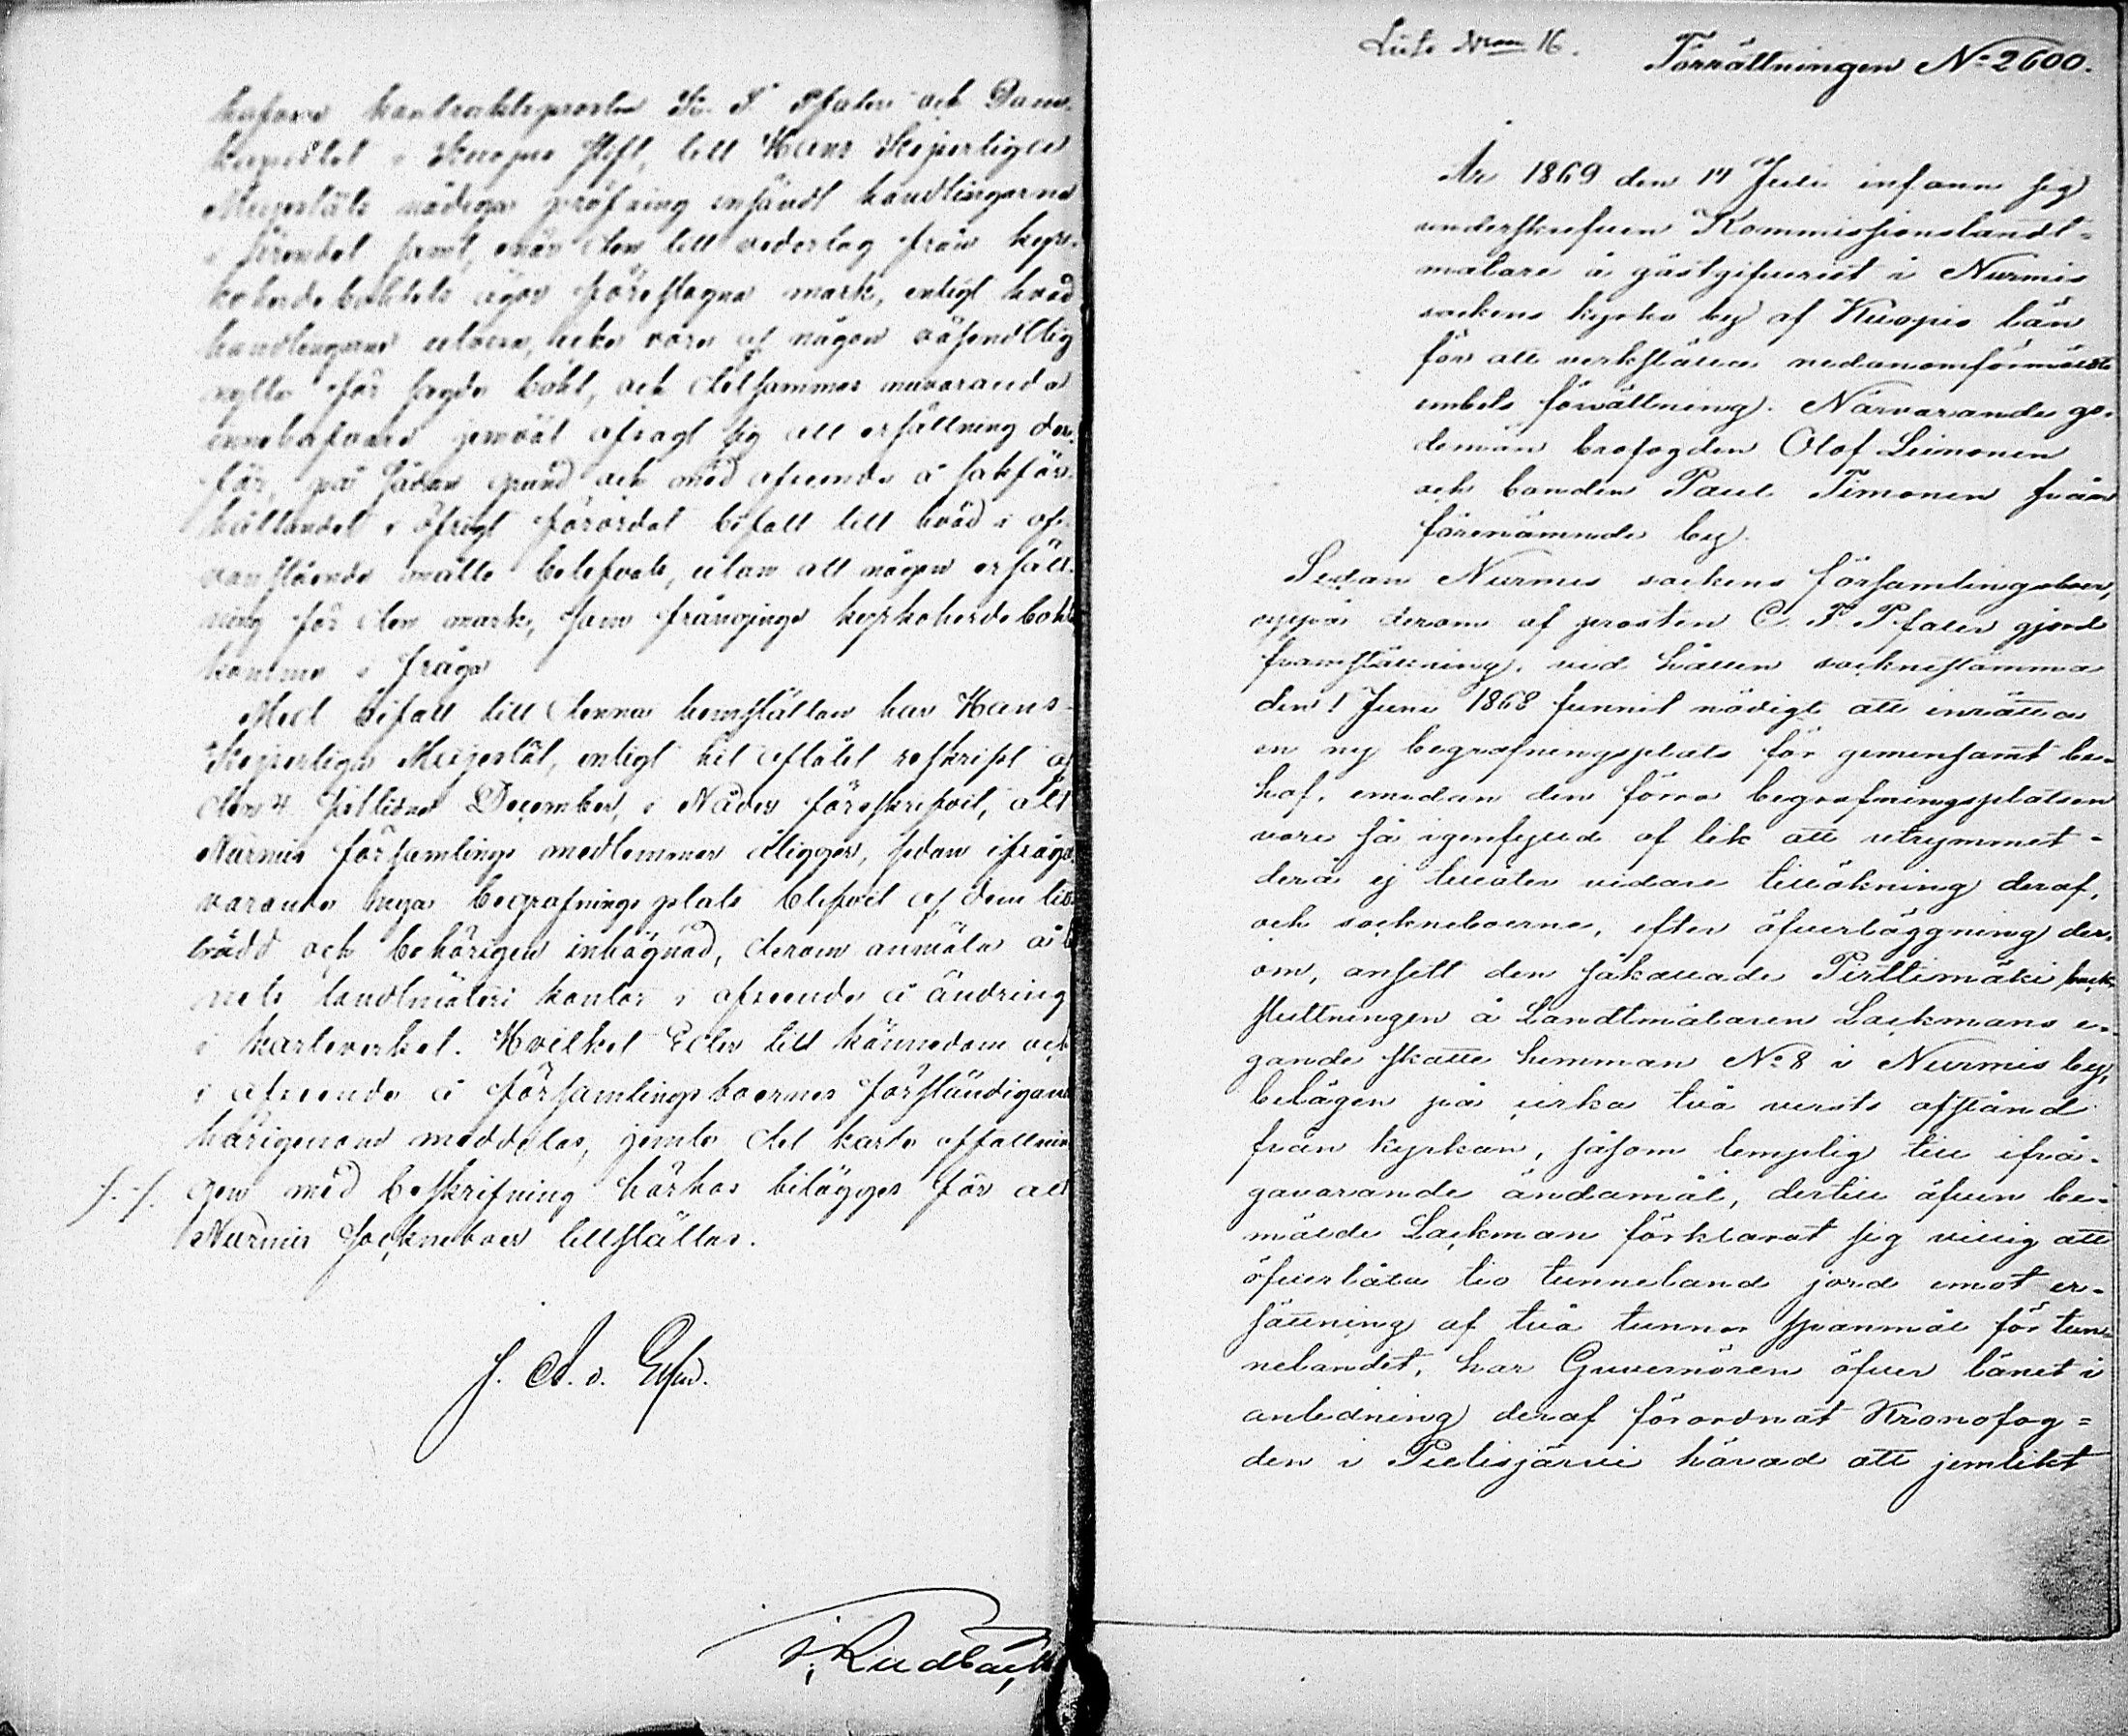 hafvare kontraktsprosten K. F. Pfaler och Dom-
kapitlet i Kuopio stift, till Hans Kejserliga
Majestäts nådiga pröfning insändt handlingarne
i ärendet samt, enär den till vederlag från kyrko-
herdebohlets ägor föreslagna mark, enligt hvad
handlingarne utvisa, icke vore af någon väsendtlig
nytta för sagde bohl, och detsammas nuvarande
innehafvare jemväl afsagt sig all ersättning der-
för, på sådan grund och med afseende å sakför-
hållandet i öfrigt förordat bifall till hvad i ofvan
vanstående måtto blifvit, utan att någon ersätt-
ning för den mark, som frånginge kyrkoherdebohlet
komme i fråga
Med bifall till denna hemställan har Hans
Kejserliga Majestät, enligt hit aflåtet reskript af
den 4 sistlidne December, i Nåder föreskrifvit, att
Nurmis församlings medlemmar åligger, sedan ifråga-
varande nya begrafningsplats blifvit af dem till-
trädd och behörigen inhägnad, derom anmäla å lä-
nets landtmäteri kontor i afseende å ändring
i kartverket. Hvilket Eder till kännedom och
i afseende å församlingsboernes förständigande
härigenom meddelas, jemte det karte affattnin-
gen med beskrifning härhos bilägges för att
Nurmis Sockneboer tillställas.
Litt Nron 16.
Förrättningen No 2600.
År 1869 den 14 Juli infann sig
underskrefven Kommissionslandt-
mätare å gästgifveriet i Nurmis
sockens kyrko by af Kuopio län
för att verkställa nedanomförmälde
embets förrättning. Närvarande go-
demän brofogden Olof Leimonen
och bonden Paul Timonen från
förenämnde by.
Sedan Nurmis sockens församlingsboer,
uppå derom af prosten C. F. Pfaler gjord
framställning, vid hållen sockenstämma
den 1 Juni 1868 funnit nödigt att inrätta
en ny begrafningsplats för gemensamt be-
hof, emedan den förra begrafningsplatsen
vore så igenfylld af lik att utrymmet
derå ej tillåter vidare tillökning deraf,
och sockneboerne, efter öfverläggning der-
om, ansett den såkallade Pirttimäki back-
sluttningen å Landtmätaren Lackmans e-
gande skatte hemman No 8 i Nurmis by,
belägen på cirka två versts afstånd
från kyrkan, såsom lemplig till ifrå-
gavarande ändamål, dertill äfven be-
mälde Lackman förklarat sig villig att
öfverlåta tio tunneland jord emot er-
sättning af två tunnor spanmål för tun-
nelandet, har Guvernören öfver länet i
anledning deraf förordnat Kronofog-
den i Pielisjärvi härad att jemlikt